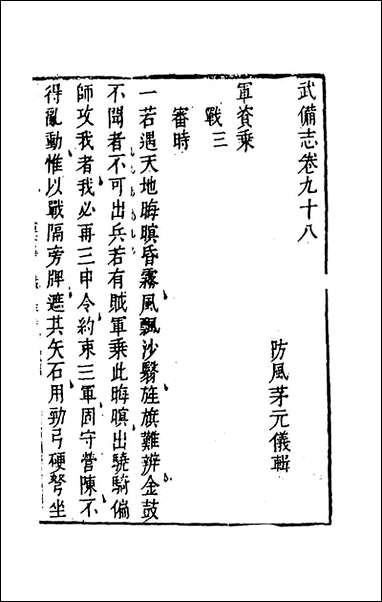 武備志卷九十八
防風茅元儀輯
軍資乗
戰三
審時
一若遇天地晦暝昏霧風飄沙翳旌旗難辨金鼓
不聞者不可出兵若有賊軍乗此晦暝出驍騎偏
師攻我者我必再三申令約束三軍固守營陳不
得亂動惟以戰隔旁牌遮其矢石用勁弓硬弩坐